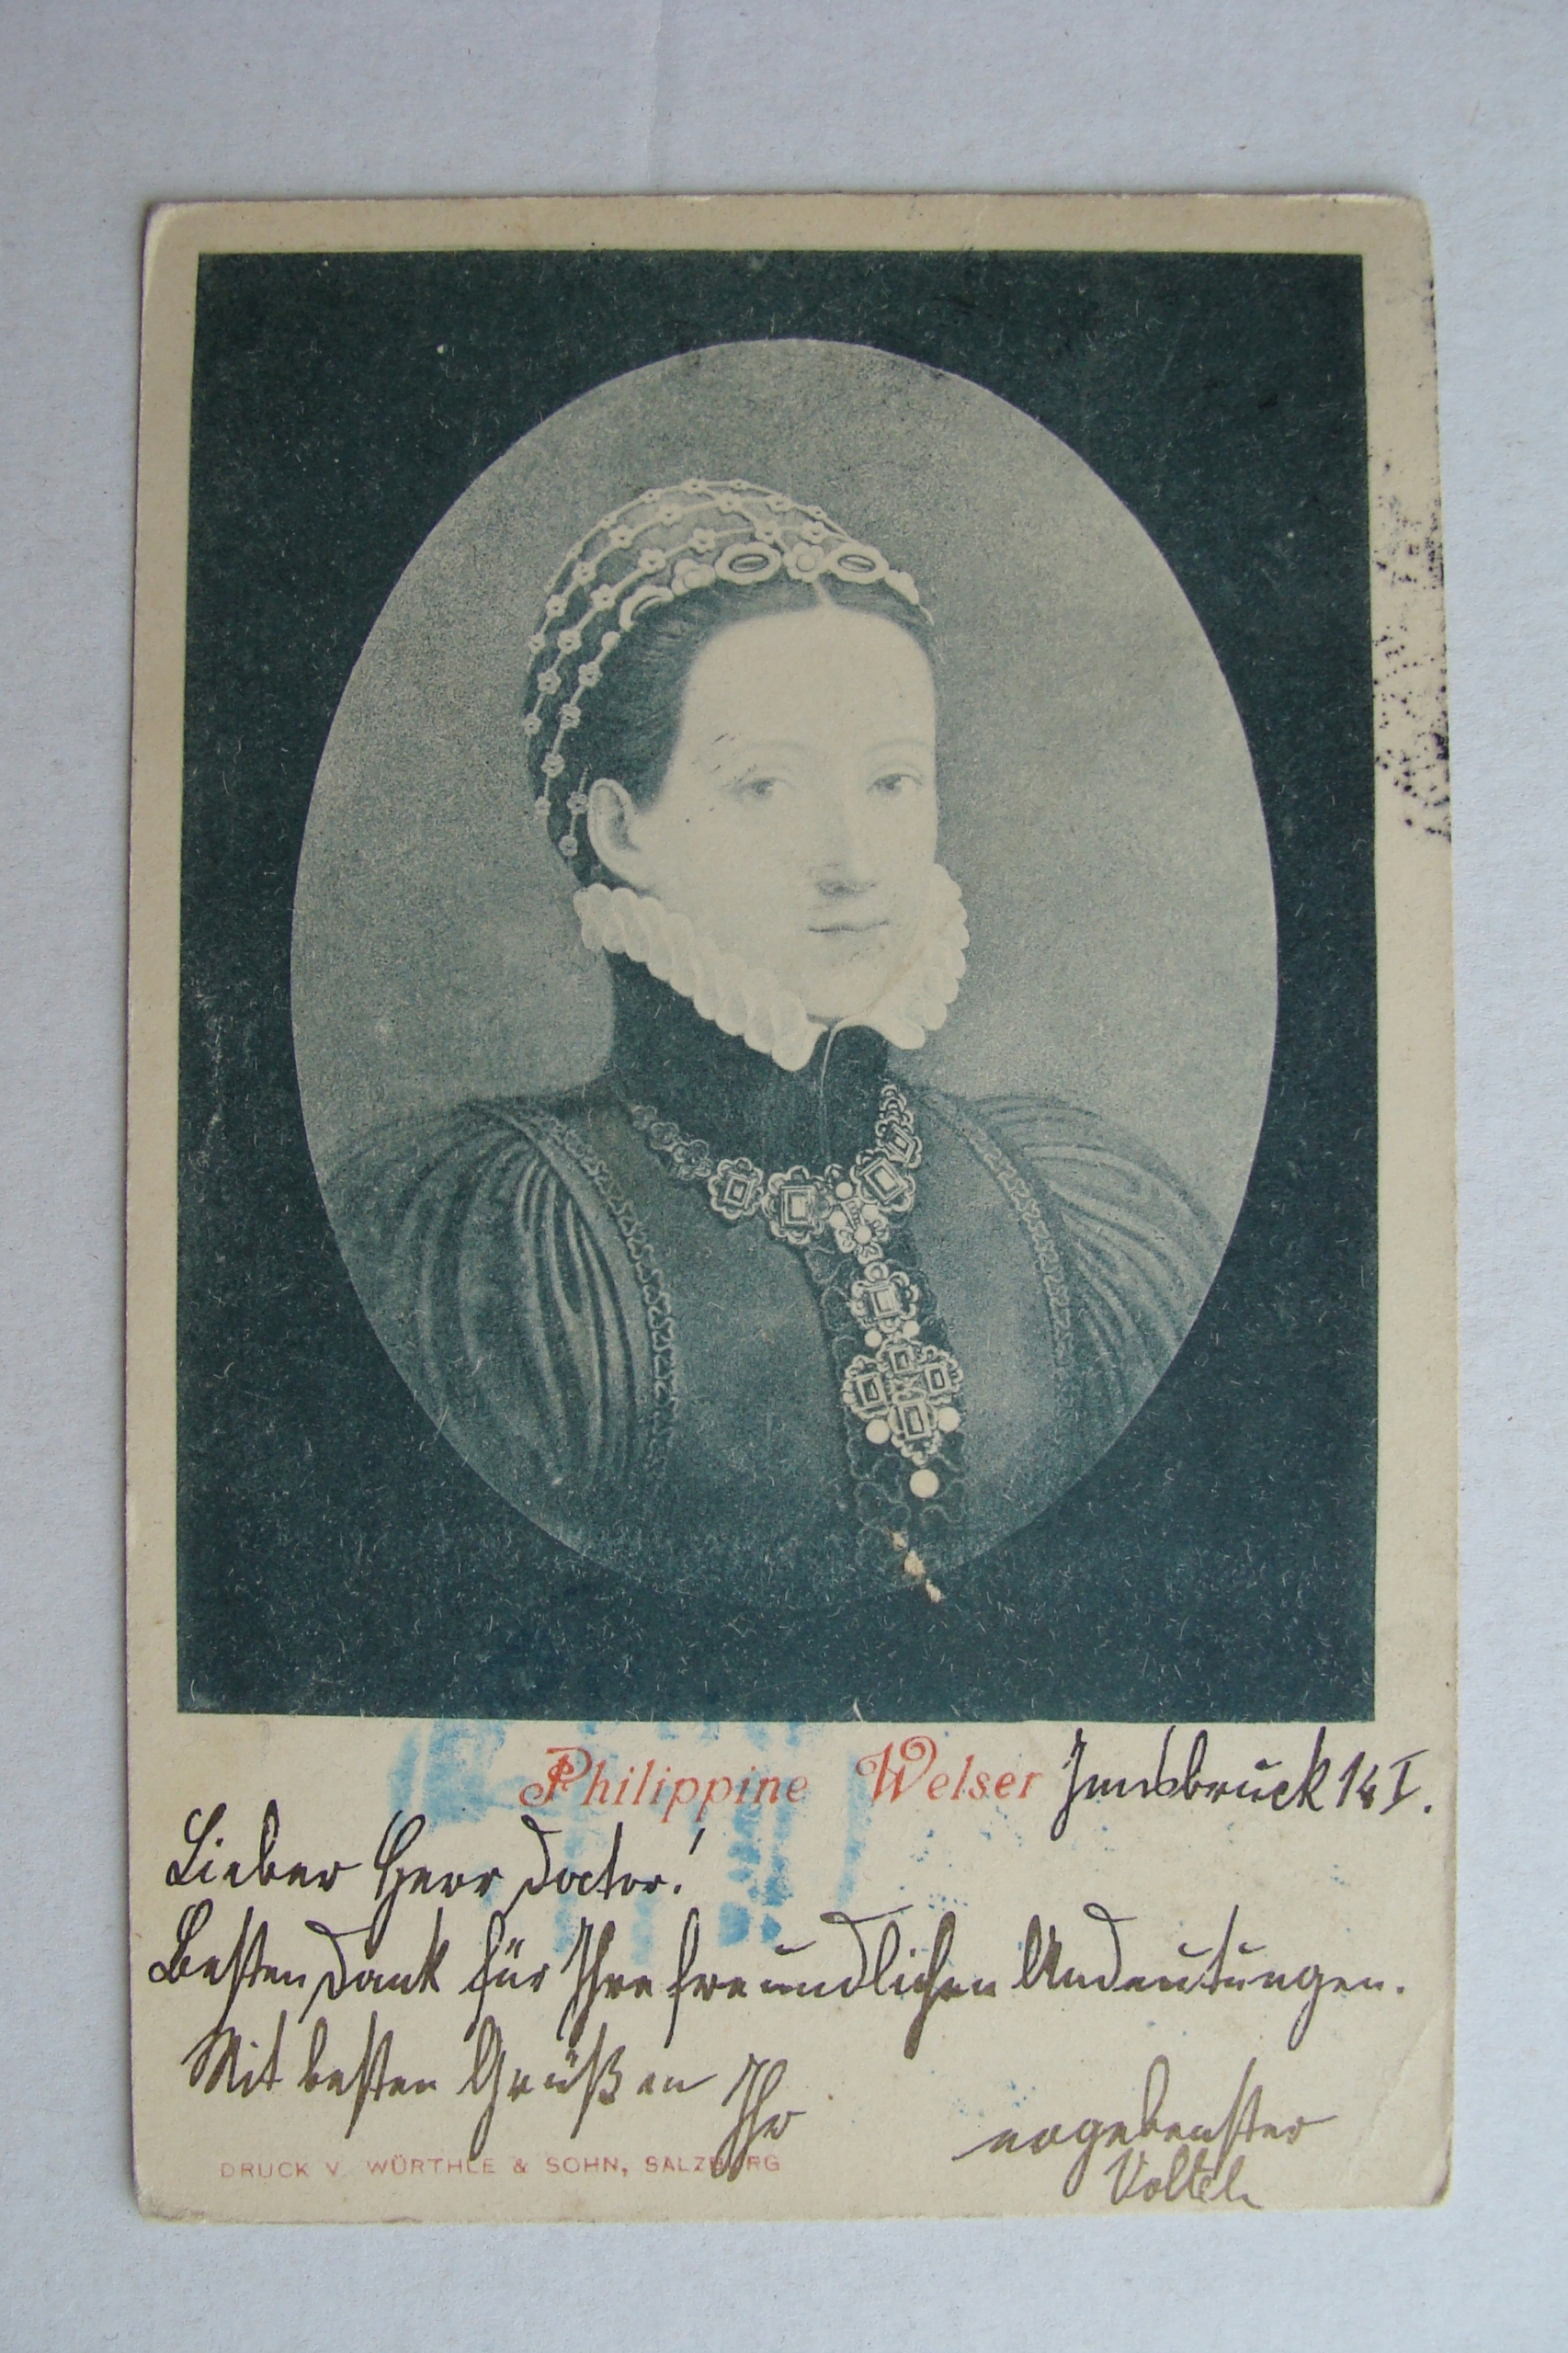 Philippine Welser Innsbruck 14 I.
Lieber Herr Doctor!
Besten Dank für Ihre freundlichen Andeutungen.
Mit besten Grüßen Ihr
ergebenster
DRUCK V. WÜRTHLE & SOHN, SALZBURG